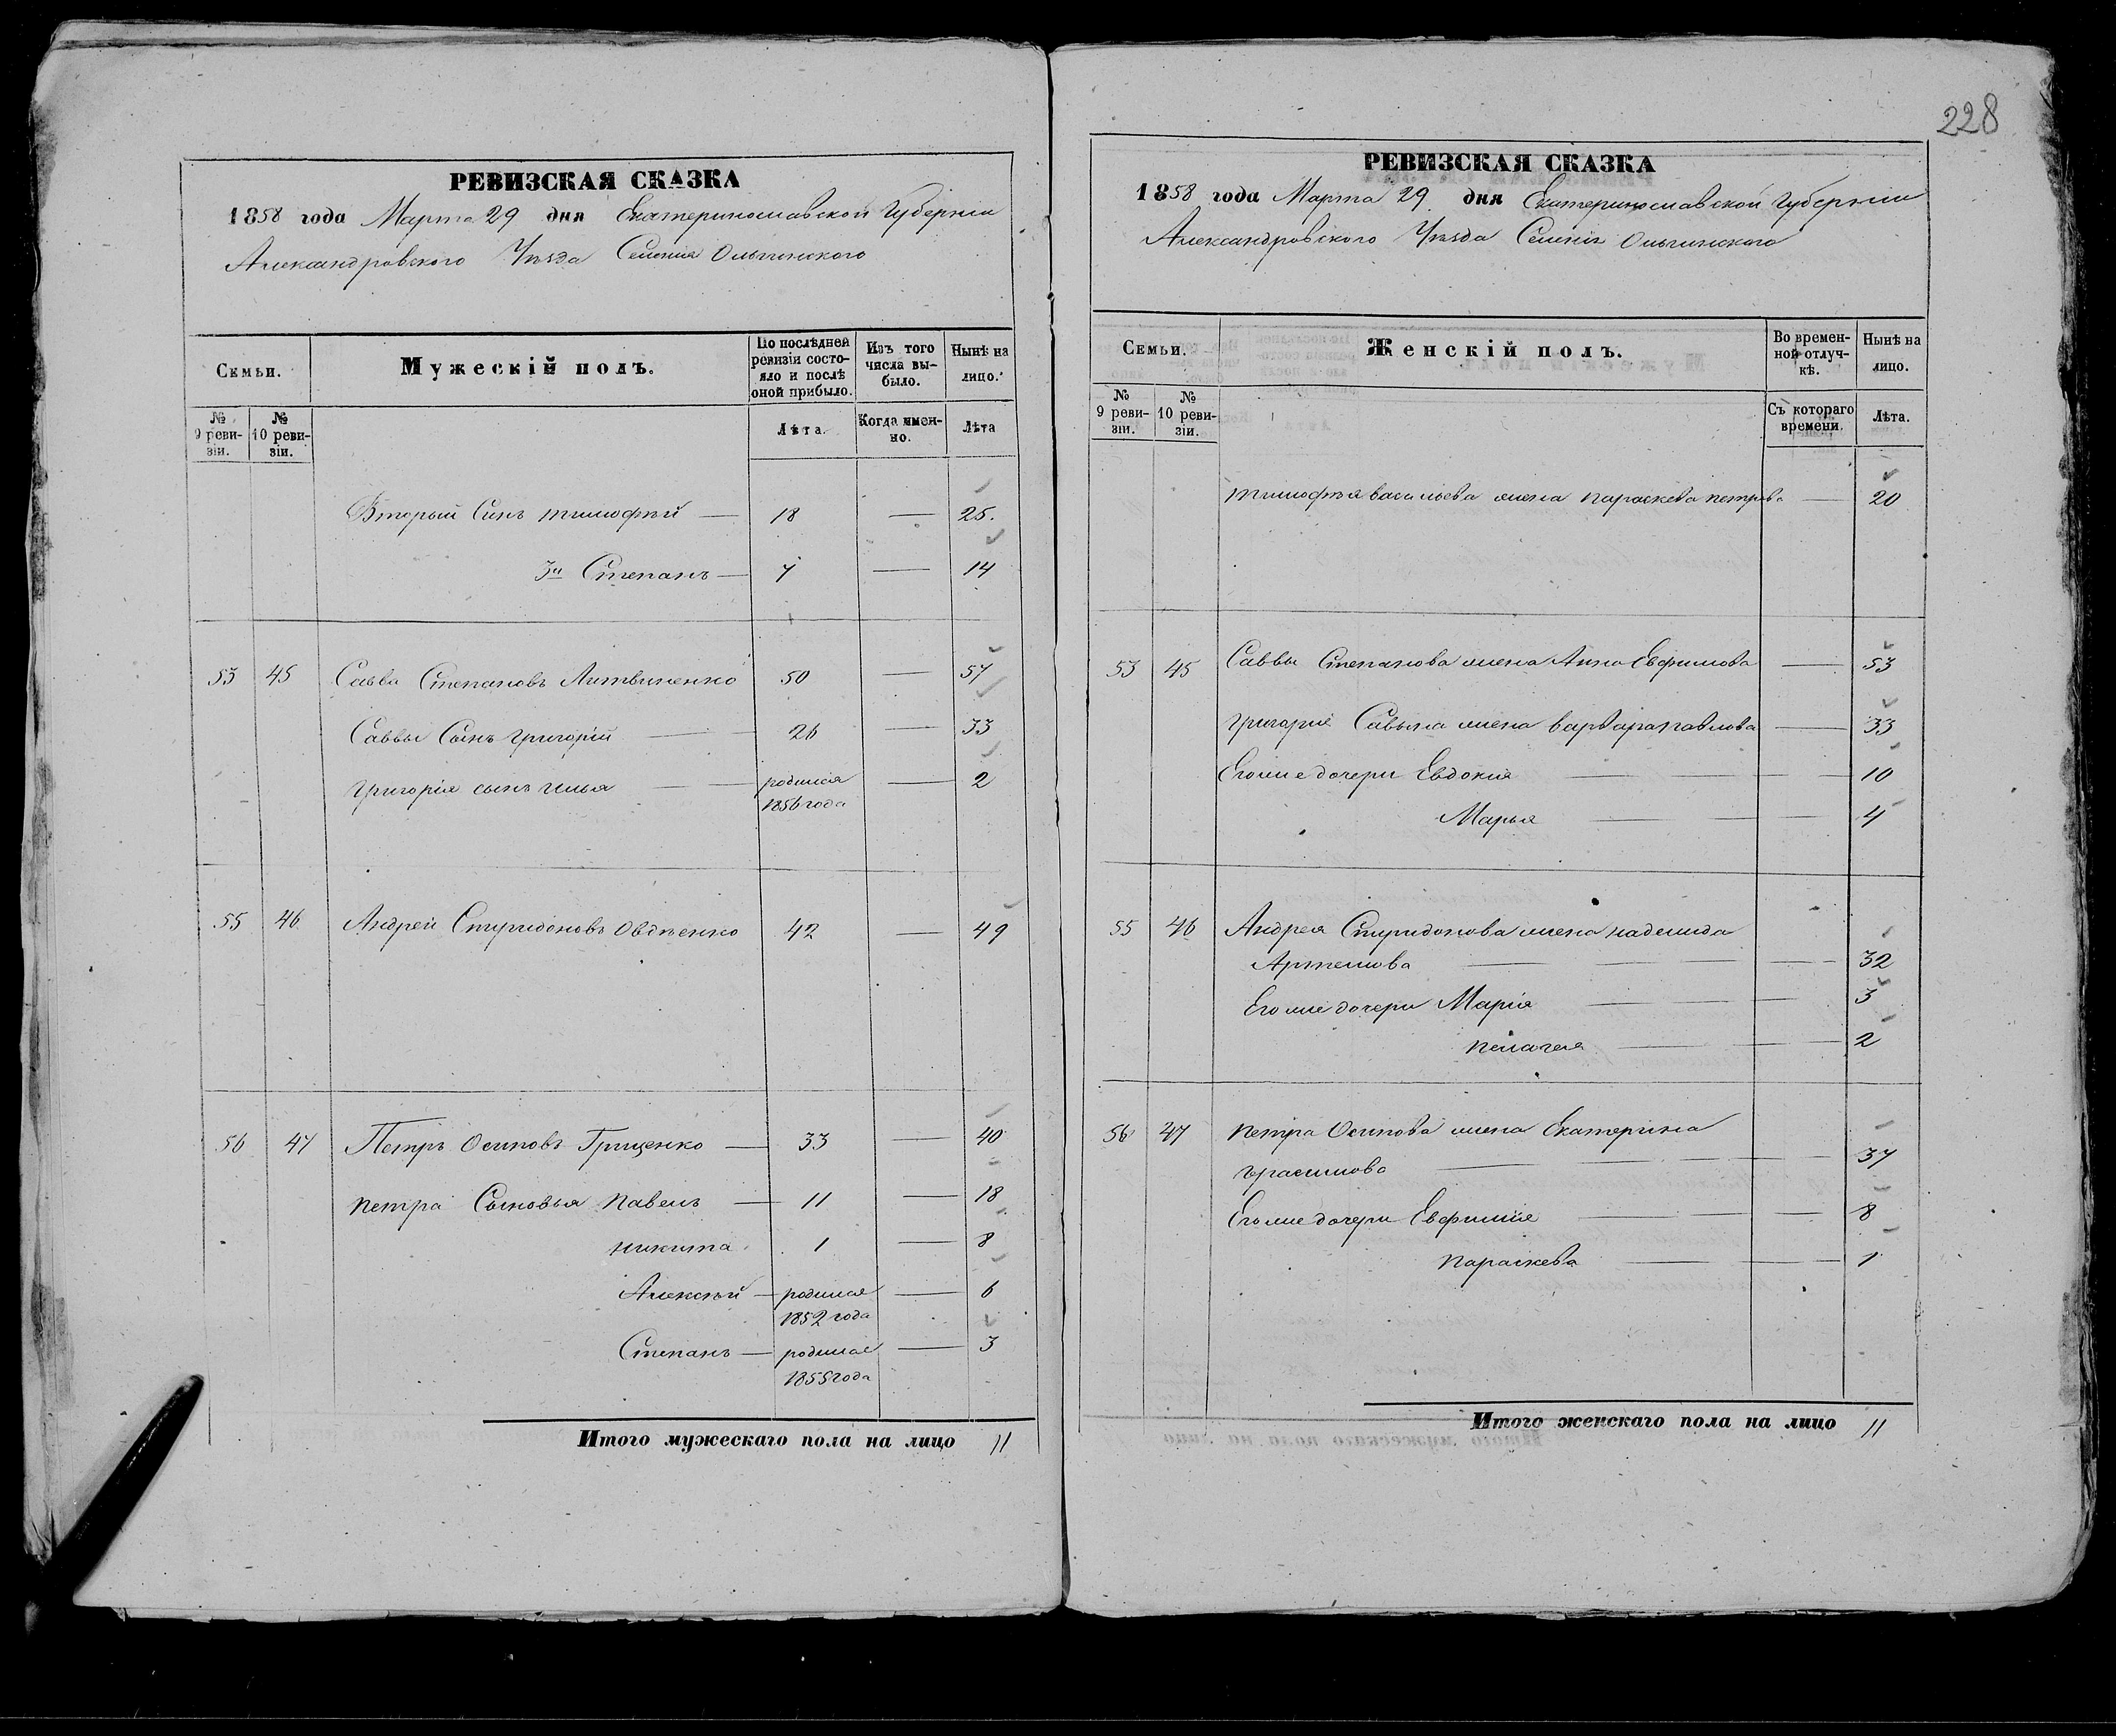 228
РЕВИЗСКАЯ СКАЗКА
1858 года Марта 29 дня Екатеринославской Губерніи
Александровского Уѣзда Селенія Ольгинского
Семьи.
Мужескій полъ.
По послѣдней ревизіи состояло и послѣ оной прибыло.
Изъ того числа выбыло.
Нынѣ на лицо.
№ 9 ревизіи.
№ 10 ревизіи.
Лѣта.
Когда именно.
Лѣта
Вторый Сынъ тимофѣй — 18 — 25.
3й Степанъ — 7 — 14
53 45 Савва Степановъ Литвиненко 50 — 57
Саввы Сынъ григорій — 26 — 33
григорія сынъ илья — родился 1856 года — 2
55 46 Андрей Спиридоновъ Овдѣенко 42 — 49
56 47 Петръ Осиповъ Грищенко — 33 — 40
петра Сыновья павелъ — 11 — 18
никита 1 — 8
Алексѣй — родился 1852 года — 6
Степанъ — родился 1855 года — 3
Итого мужескаго пола на лицо 11
РЕВИЗСКАЯ СКАЗКА
1858 года Марта 29 дня Екатеринославской Губерніи
Александровского Уѣзда Селенія Ольгинского
Семьи.
Женскій полъ.
Во временной отлучкѣ.
Нынѣ на лицо.
№ 9 ревизіи.
№ 10 ревизіи.
Съ котораго времени.
Лѣта.
тимофѣя васильева жена параскева петрова — 20
53 45 Саввы Степанова жена Анна Евфимова — 53
григорія Савына жена варвара павлова — 33
Егоже дочери Евдокия — 10
Марья — 4
55 46 Андрея Спиридонова жена надежда
Артемова — 32
Егоже дочери Марія — 3
пелагея — 2
56 47 петра Осипова жена Екатерина
герасимова — 37
Егоже дочери Евфимія — 8
параскева — 1
Итого женскаго пола на лицо 11